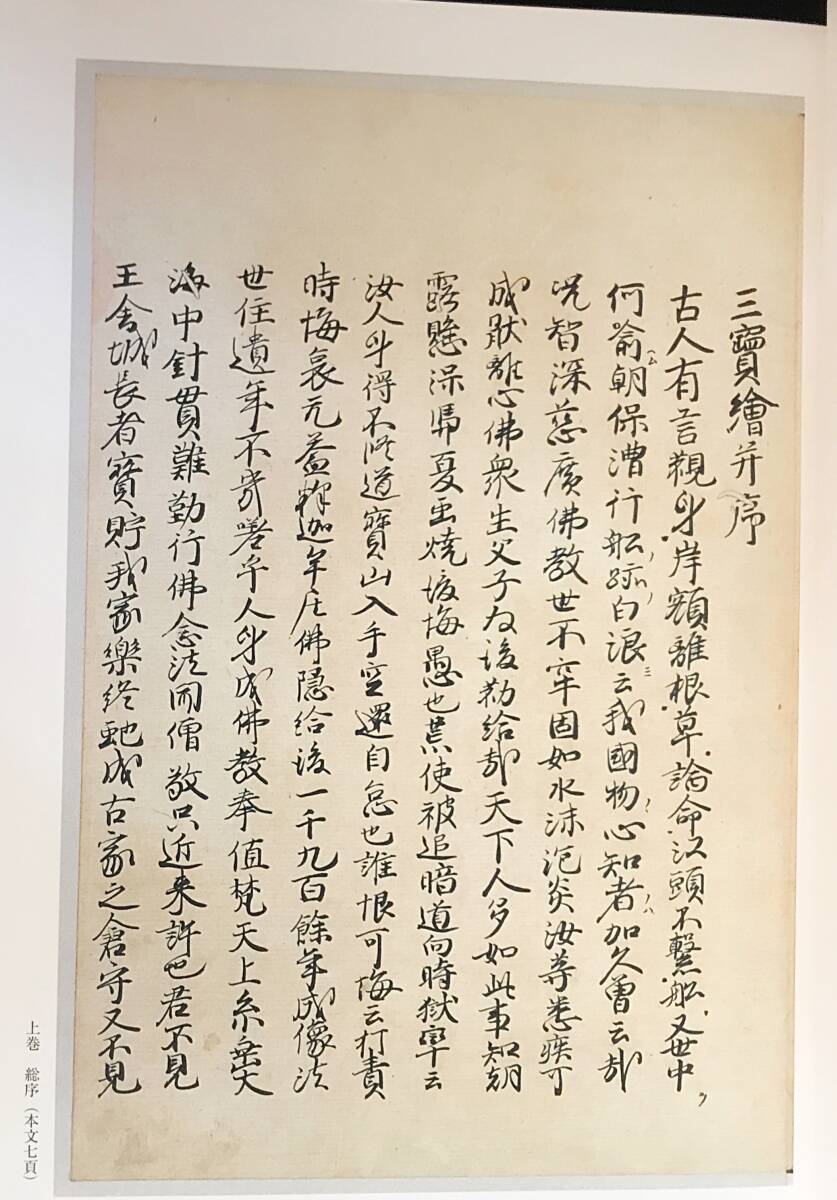 三寳繪并序
古人有言觀身岸額離根草論命江頭不繫舩又世中ヲ
何喩朝保漕行舩跡白浪云我國物心知者加久曽云哉
况智深慈廣佛教世不牢固如水沫泡炎汝等悉疾可
成猒離心佛衆生父子為後勅給哉天下人多如此事知朝
露懸深馮夏虫燒後悔愚也煑使被追暗道向時獄卒云
汝人身得不修道寳山入手空還自怠也誰恨可悔云打責
時悔哀无益釋迦牟尼佛隠給後一千九百餘年成像法
世住遺年不㡬喜乎人身成佛教奉值梵天上糸垂大
海中針貫難勤行佛念法聞僧敬只近来許也君不見
王舎城長者寳貯我家樂終虵成古家之倉守又不見
上巻 総序（本文七頁）